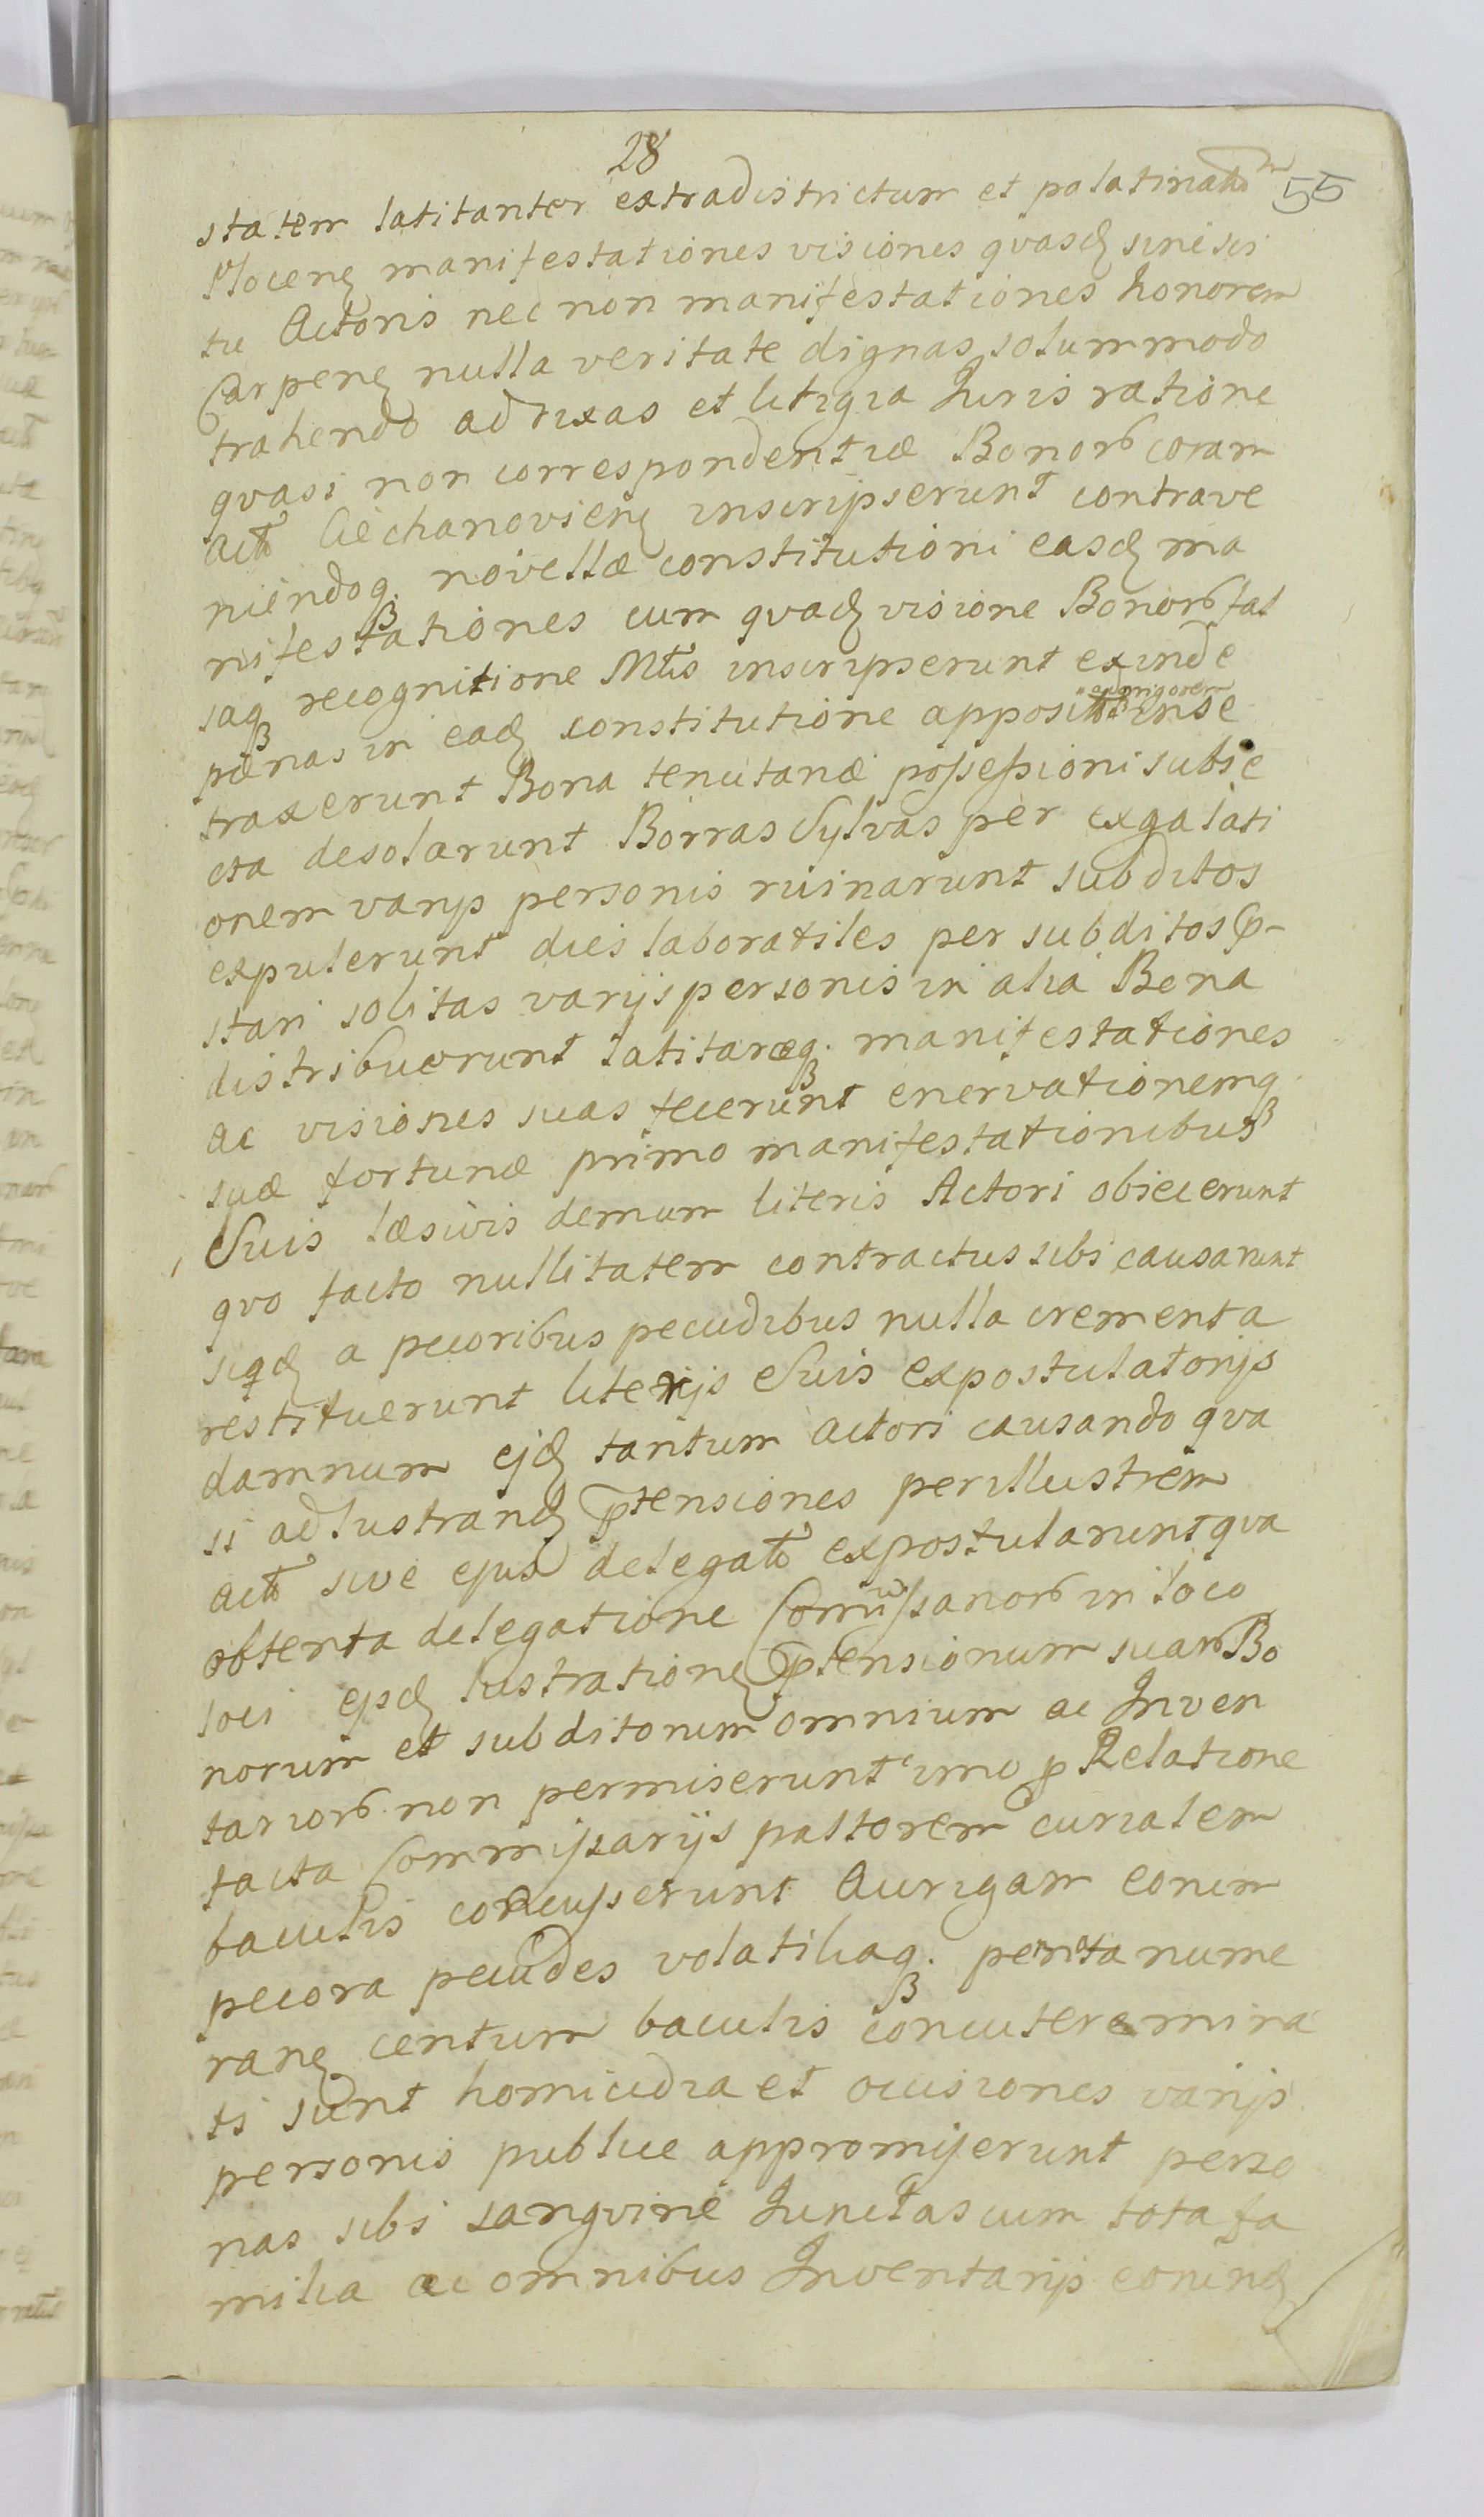 28
55
statem latitanter extradistrictum et palatinatum
Plocen manifestationes visiones qvasd sine sci
tu Actoris nec non manifestationes honorem
Carpen nulla veritate dignas solummodo
trahendo ad rixas et litigia Juris ratione
qvasi non correspondentiæ Bonor coram
actis Ciechanovien inscripserunt contrave
niendoq novellæ constitutioni easd ma
nifestationes cum qvad visione Bonor fal
saq recognitione Mtis inscripserunt exinde
pænas in ead constitutione appositas inse
traxerunt Bona tenutanæ possessioni subie
cta desolarunt Borras Sylvas per exga lati
onem varijs personis ruinarunt subditos
expulerunt dies laboratiles per subditos p-
stari solitas varijs personis in alia Bona
distribuerunt latitaræq manifestationes
ac visiones suas fecerunt enervationemq
suæ fortunæ primo manifestationibus
Suis læsivis demum literis Actori obiecerunt
qvo facto nullitatem contractus sibi causarunt
siqd a pecoribus pecudibus nulla crementa
restituerunt literijs Suis expostulatorijs
damnum ejd tantum actori causando qva
si ad lustrand ptensiones perillustrem
actm sive ejus delegatm expostularunt qva
obtenta delegatione Comissarior in loco
loci ejsd lustration ptensionum suar Bo
norum et subditorum omnium ac Inven
tarior non permiserunt imo p Relatione
facta Commissarijs pastorem curialem
baculis concusserunt Aurigam eorum
pecora pecudes volatiliaq penta nume
ran centum baculis concutere mina
ti sunt homicidia et occisiones varijs
personis publice appromiserunt perso
nas sibi sangvine Junctas cum tota fa
milia ac omnibus Inventarijs eorund